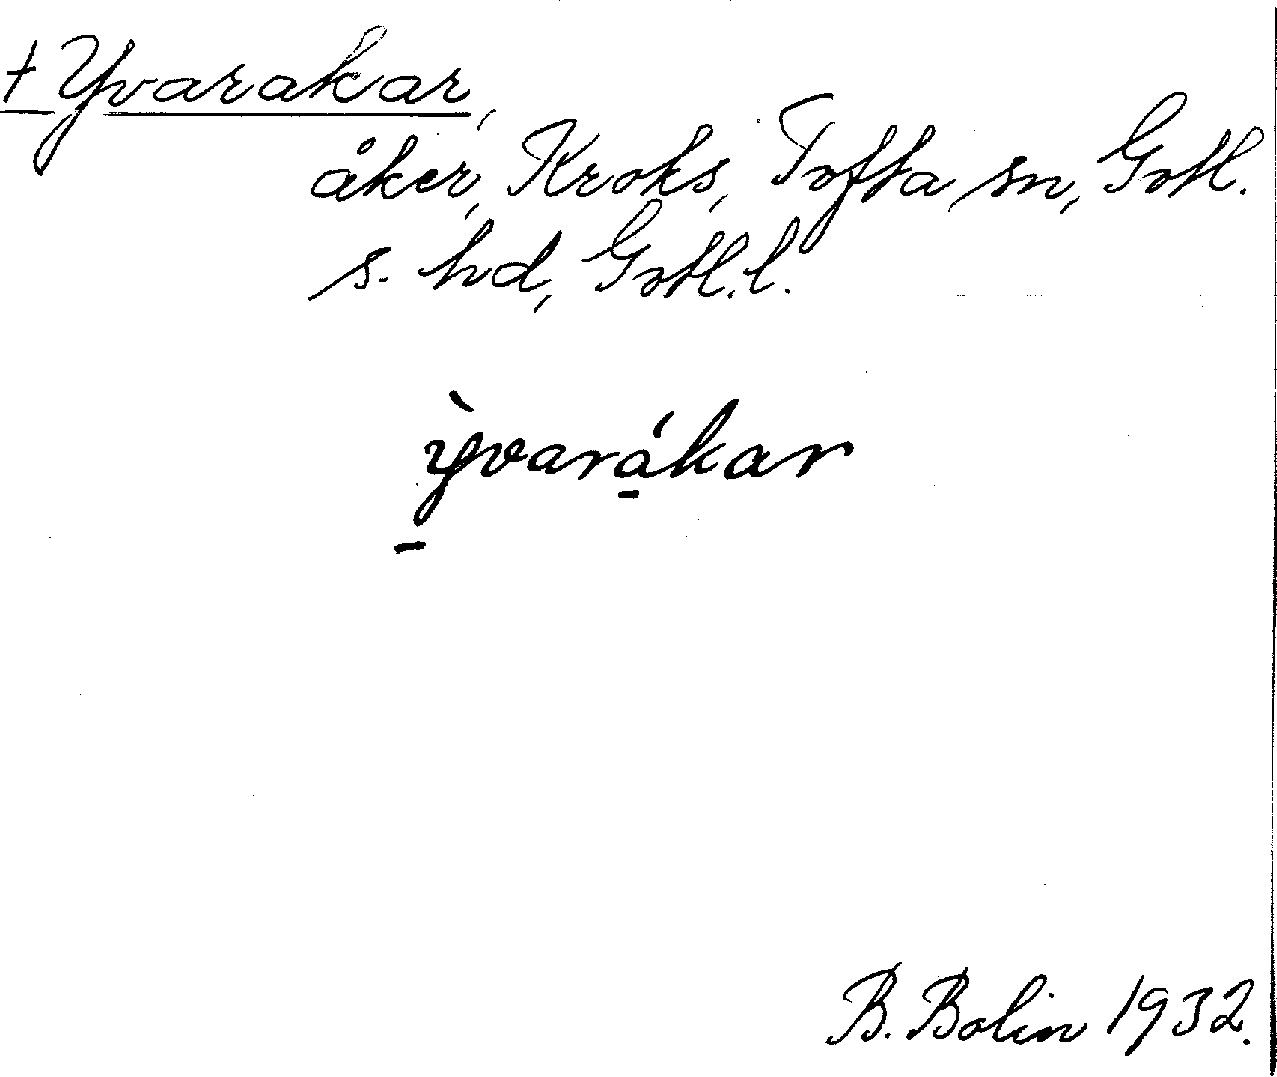 † Yvarakar,
åker, Kroks, Tofta sn, Gotl.
s. hd, Gotl. l.
ỳ̱vará̱kar
B. Bolin 1932.